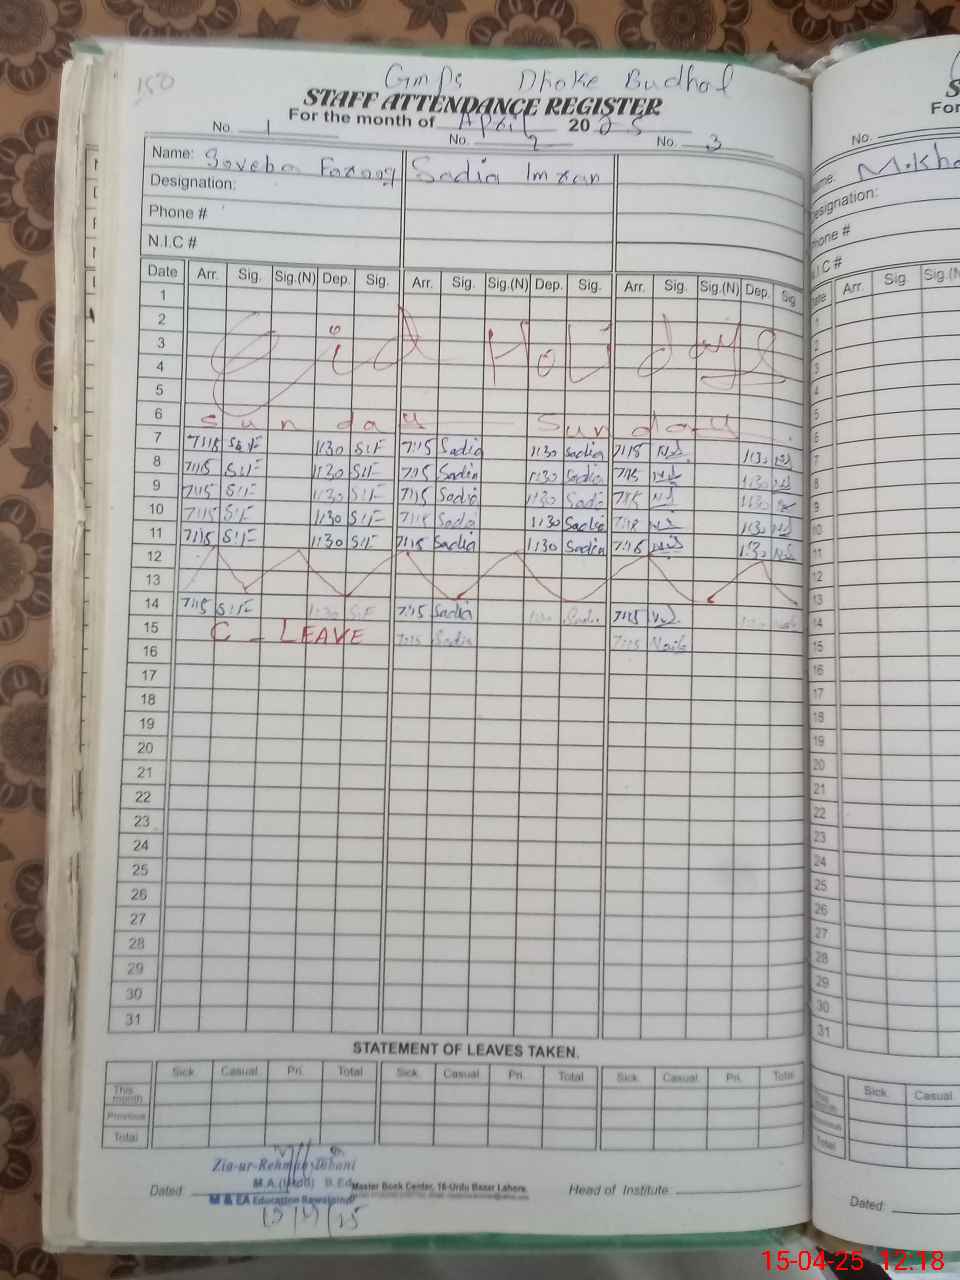 150
Gmps Dhoke Budhal
STAFF ATTENDANCE REGISTER
For the month of April 2025
No. 1 No. 2 No. 3
Name: Soveba Farooq Sadia Imran
Designation:
Phone #
N.I.C #
Date Arr. Sig. Sig.(N) Dep. Sig. Arr. Sig. Sig.(N) Dep. Sig. Arr. Sig. Sig.(N) Dep. Sig
1
2
3 Eid Holi days
4
5
6 Sunday Sunday
7 7:15 S.F 1:30 S.F 7:15 Sadia 1:30 Sadia 7:15 N.S 1:30 N.S
8 7:15 S.F 1:30 S.F 7:15 Sadia 1:30 Sadia 7:15 N.S 1:30 N.S
9 7:15 S.F 1:30 S.F 7:15 Sadia 1:30 Sadia 7:15 N.S 1:30
10 7:15 S.F 1:30 S.F 7:15 Sadia 1:30 Sadia 7:15 N.S 1:30 N.S
11 7:15 S.F 1:30 S.F 7:15 Sadia 1:30 Sadia 7:15 N.S 1:30 N.S
12
13
14 7:15 S.F 1:30 S.F 7:15 Sadia 1:30 Sadia 7:15 N.S
15 C - LEAVE 7:15 Sadia 7:15
16
17
18
19
20
21
22
23
24
25
26
27
28
29
30
31
STATEMENT OF LEAVES TAKEN.
Sick. Casual. Pri. Total Sick. Casual. Pri. Total Sick. Casual. Pri. Total
This month
Previous
Total
Zia-ur-Rehman
M.A.(Urdu) B.Ed
M & EA Education Rawalpindi
Dated: Master Book Center, 16-Urdu Bazar Lahore. Head of Institute:
15/4/25
No.
Name: M.Kha
Designation:
Phone #
N.I.C #
Date Arr. Sig. Sig.(N
1
2
3
4
5
6
7
8
9
10
11
12
13
14
15
16
17
18
19
20
21
22
23
24
25
26
27
28
29
30
31
Sick Casual
Total
Dated:
15-04-25 12:18